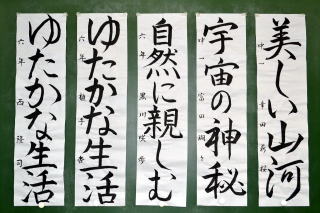 美しい山河
中一
宇宙の神秘
中一 富田
自然に親しむ
六年 黒川咲歩
ゆたかな生活
六年
ゆたかな生活
六年 西隆司